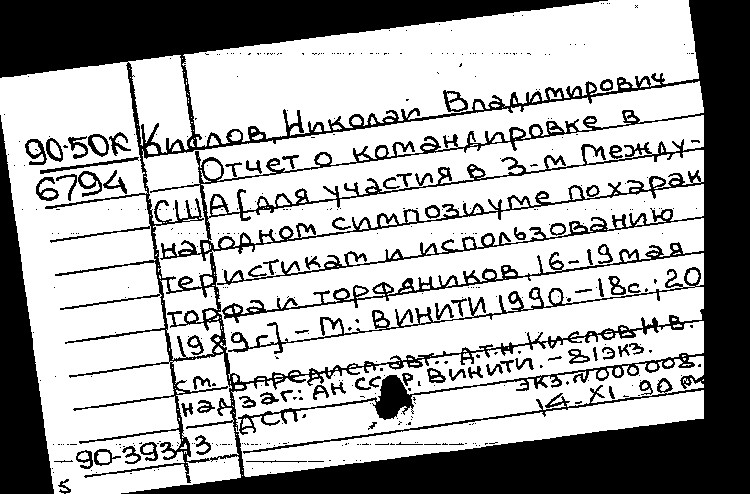 90-50К Кислов, Николай Владимирович
6794 Отчет о командировке в
США [для участия в 3-м Между-
народном симпозиуме по харак
теристикам и использованию
торфа и торфяников, 16-19 мая
1989 г.]. - М.: ВИНИТИ, 1990. - 18 с.; 20
см. В предисл. авт.: д.т.н. Кислов Н.В.
над заг.: АН СССР. ВИНИТИ. - 81 экз.
АСП. экз. N 000008.
14-XI-90
90-39343
5